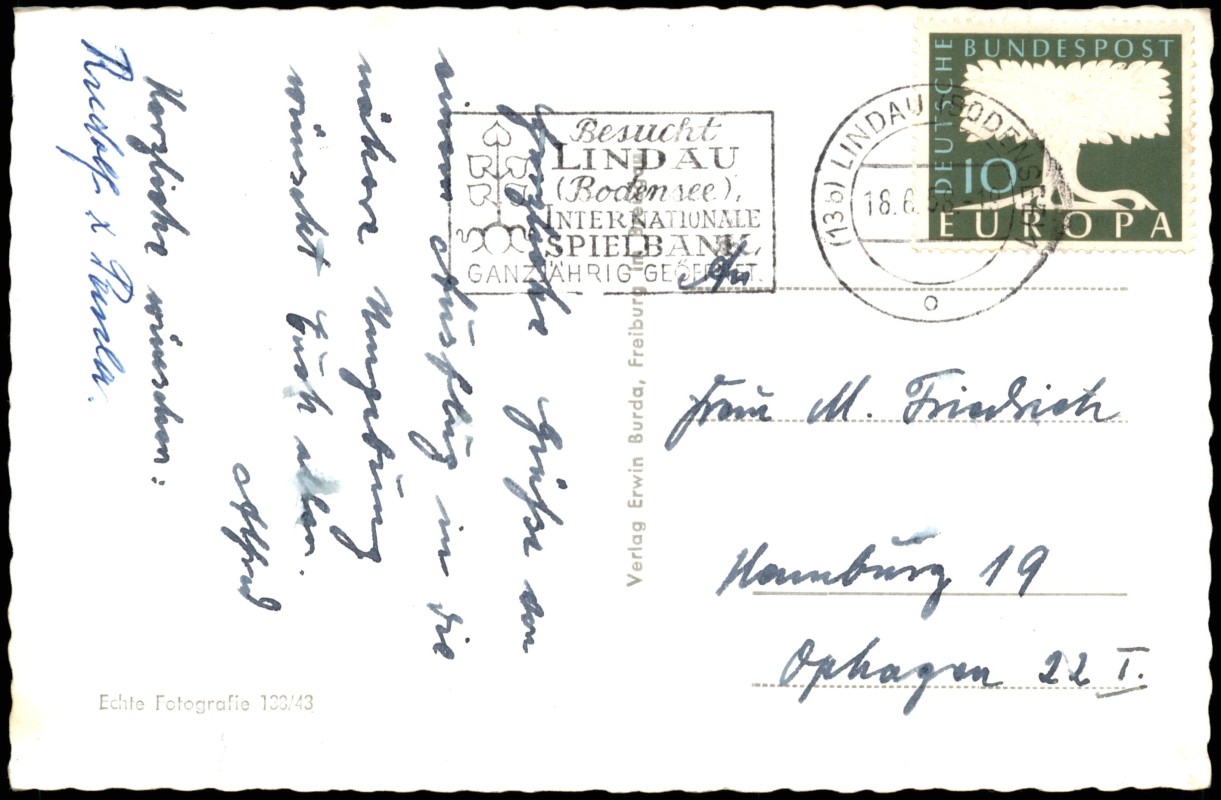 Herzliche Grüße von
einem Ausflug in die
näheren Umgebung
wünscht Euch allen.
Alfred
Herzliche wünschen:
Rudolf &
Besucht
LINDAU
(Bodensee),
INTERNATIONALE
SPIELBANK,
GANZJÄHRIG GEÖFFNET.
(13b) LINDAU (BODENSEE)
18.6.58.
DEUTSCHE BUNDESPOST
10
EUROPA
Verlag Erwin Burda, Freiburg im Breisgau
An
Frau M. Friedrich
Hamburg 19
Ophagen 22 I.
Echte Fotografie 138/43